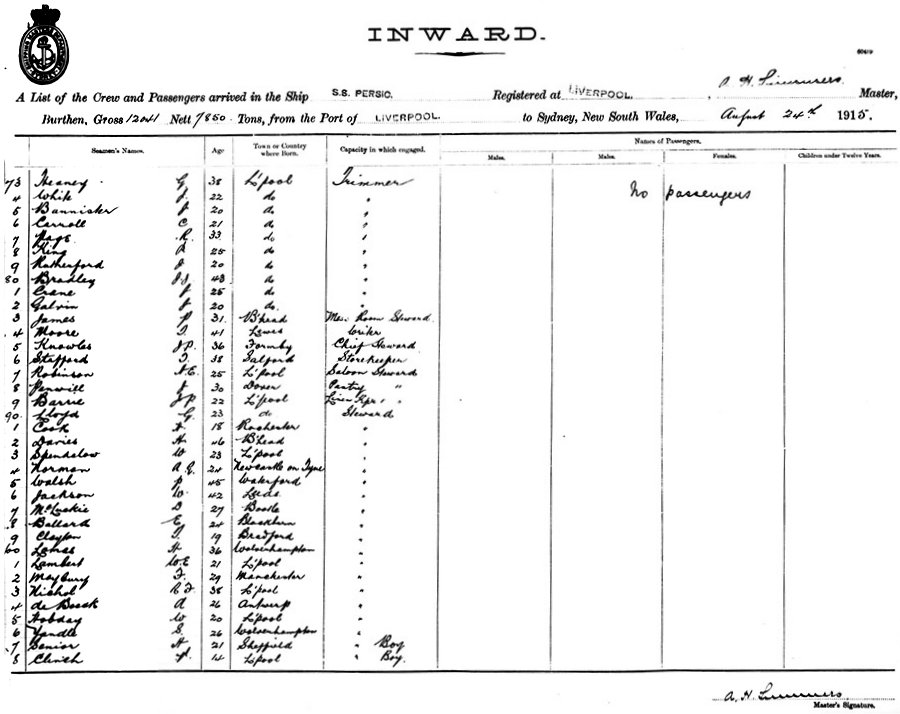 INWARD.
A List of the Crew and Passengers arrived in the Ship S.S. PERSIC. Registered at LIVERPOOL, A. H. Summers Master,
Burthen, Gross 12041 Nett 7850 Tons, from the Port of LIVERPOOL. to Sydney, New South Wales, August 24th 1915.
Names of Passengers.
Seamen's Names. Age Town or Country where Born. Capacity in which engaged. Males. Males. Females. Children under Twelve Years.
73 Heaney G 38 L'pool Trimmer
No passengers
4 White J. 22 do "
5 Bannister J 20 do "
6 Carroll C 21 do "
7 Page R. 33 do "
8 King 25 do "
9 Rutherford J. 20 do "
80 Bradley J.J 43 do "
1 Crane J 25 do "
2 Galvin J 20 do. "
3 James P 31. B'head Mess Room Steward
4 Moore T. 41 Lewis Writer
5 Knowles J.P. 36 Formby Chief Steward
6 Stafford T. 38 Salford Storekeeper
7 Robinson A.E. 25 L'pool Saloon Steward
8 J 30 Dover Pantry "
9 Barrie J.P 22 L'pool Linen Kpr "
90. Lloyd G. 23 do Steward
1 Cook A. 18 Rochester "
2 Davies H. 46 B'head "
3 Spendelow W 23 L'pool "
4 Norman A.G. 24 Newcastle on Tyne "
5 Walsh P 45 Waterford "
6 Jackson W. 42 Leeds "
7 McLuskie D 27 Bootle "
8 Ballard E 24 Blackburn "
9 Clayton T. 19 Bradford "
00 Lomas H 36 Wolverhampton "
1 Lambert W.E 21 L'pool "
2 Maybury F. 29 Manchester "
3 Nichol R F 38 L'pool "
4 de Boeck A 26 Antwerp "
5 Hobday W 20 L'pool "
6 Yandle S. 26 Wolverhampton "
7 Senior H 21 Sheffield " Boy
8 Clinch 14 L'pool " Boy.
A. H. Summers
Master's Signature.